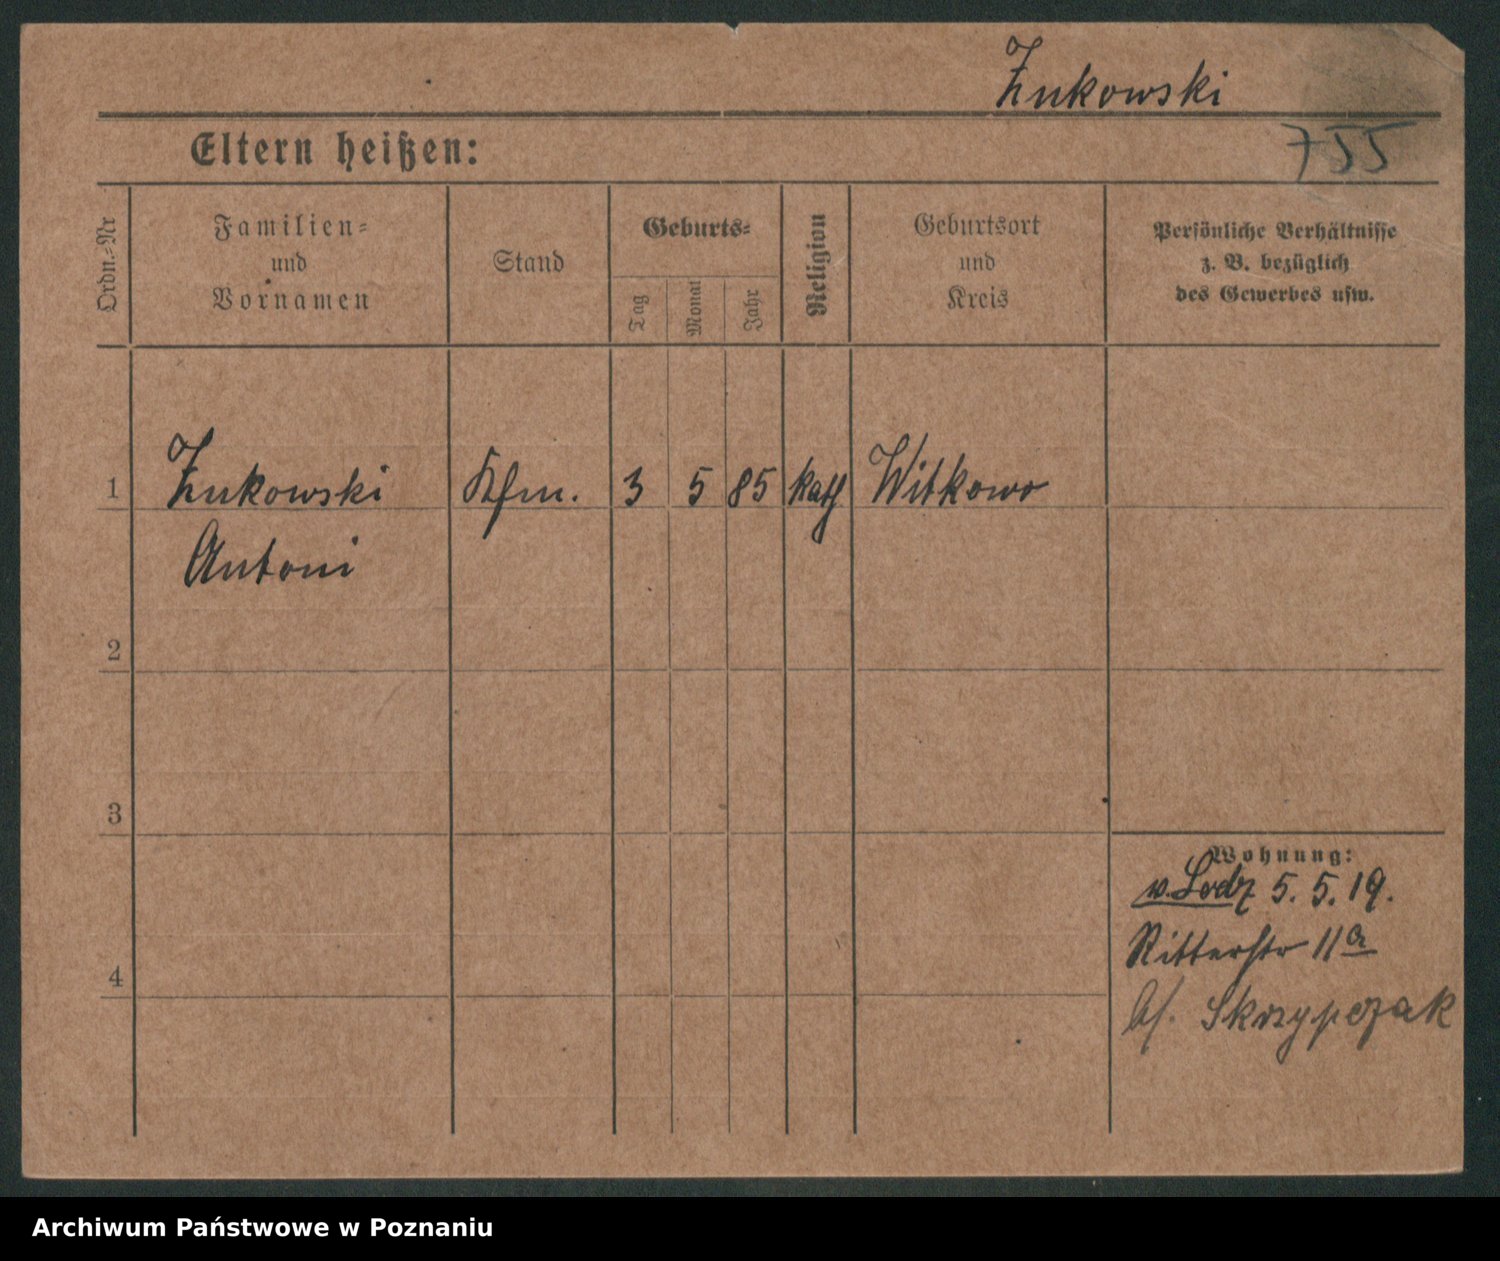 Zukowski
755
Eltern heißen:
Ordn.-Nr
Familien-
und
Vornamen
Stand
Geburts-
Tag
Monat
Jahr
Religion
Geburtsort
und
Kreis
Persönliche Verhältnisse
z. B. bezüglich
des Gewerbes usw.
1 Zukowski Kfm. 3 5 85 kath Witkowo
Antoni
2
3
4
Wohnung:
v. Lodz 5. 5. 19.
Ritterstr 11a
b/. Skrzypczak
Archiwum Państwowe w Poznaniu